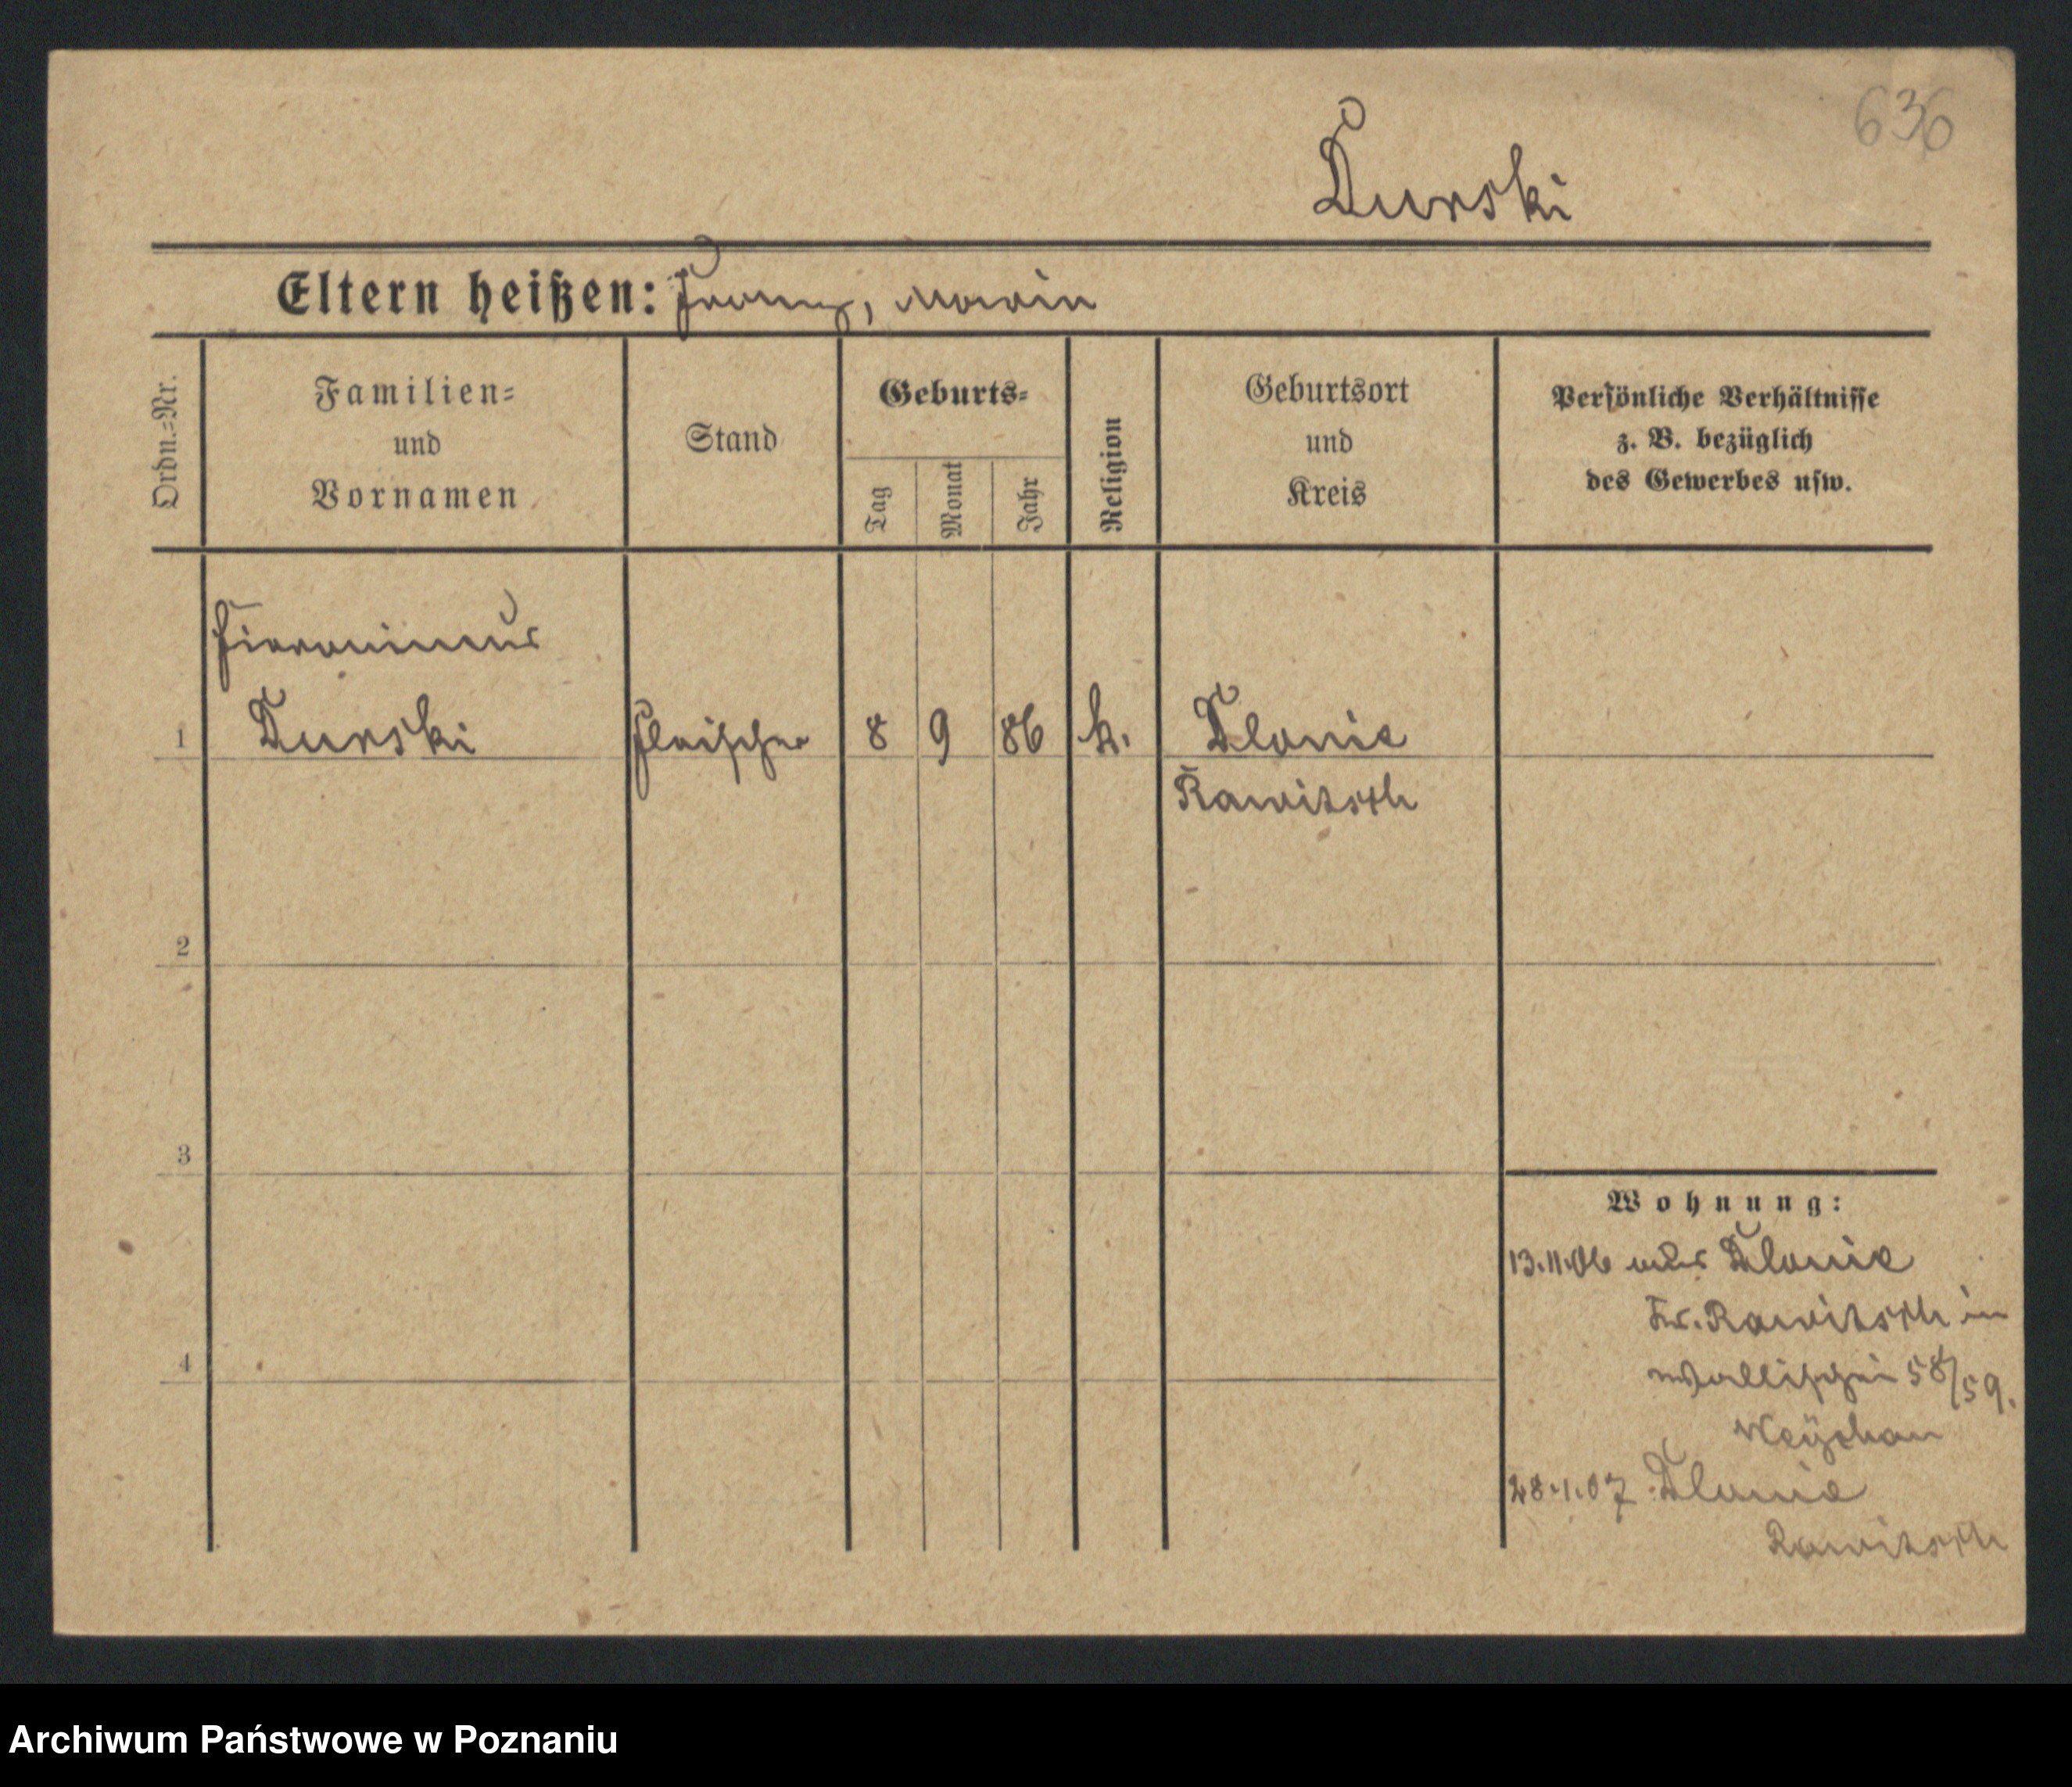 636
Durski
Eltern heißen: Franz, Marie
Ordn.-Nr.
Familien-
und
Vornamen
Stand
Geburts-
Tag
Monat
Jahr
Religion
Geburtsort
und
Kreis
Persönliche Verhältnisse
z. B. bezüglich
des Gewerbes usw.
Hieronimus
1 Durski Fleischer 8 9 86 k. Dlonie
Rawitsch
2
3
4
Wohnung:
13.11.06 aus Dlonie
Kr. Rawitsch in
Wallischei 58/59.
28.1.07 Dlonie
Rawitsch
Archiwum Państwowe w Poznaniu